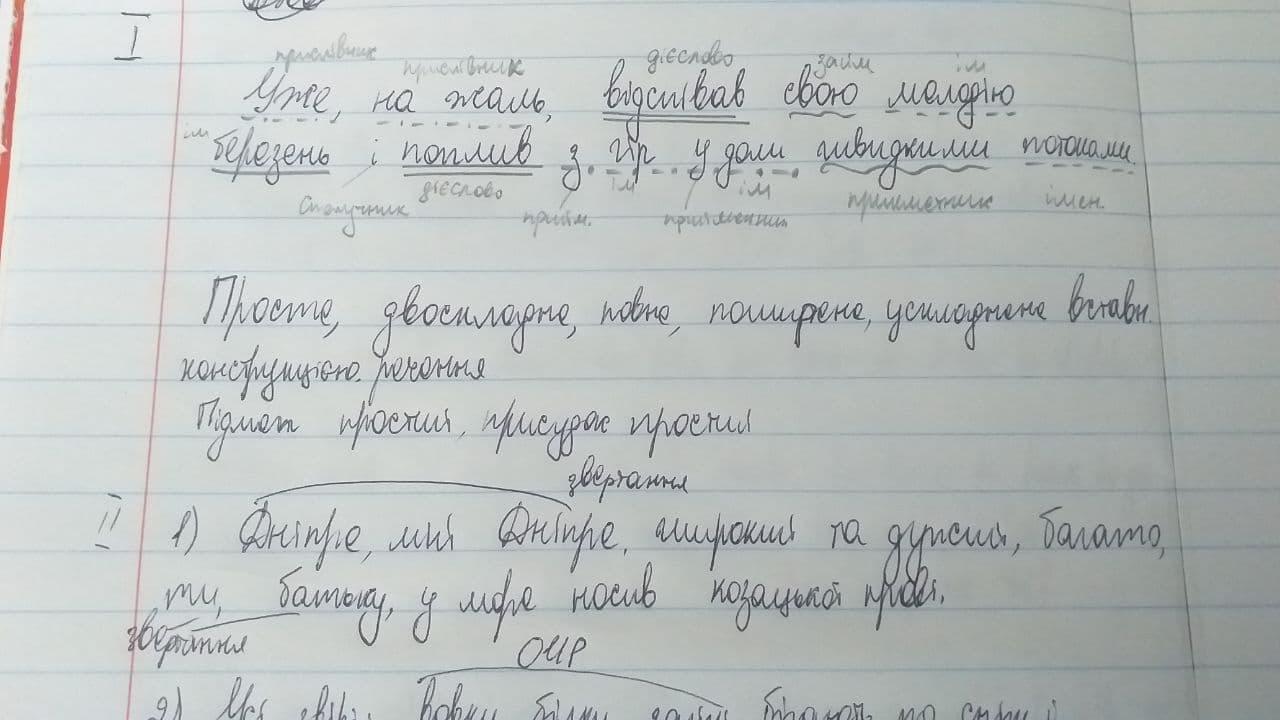 I
прислівник прислівник дієслово займ ім
Уже, на жаль, відспівав свою мелодію
ім березень і поплив з гір у доли швидкими потоками.
Сполучник дієслово прийм. ім прийменник ім прикметник імен.
Просте, двоскладне, повне, поширене, ускладнене вставн.
конструкцією речення
Підмет простий, присудок простий
звертання
II 1) Дніпре, мій Дніпре, широкий та дужий, багато,
ти, батьку, у море носив козацької крові.
звертання
ОЧР
2) Усі звірі: вовки, білки, зайці бігають по снігу і